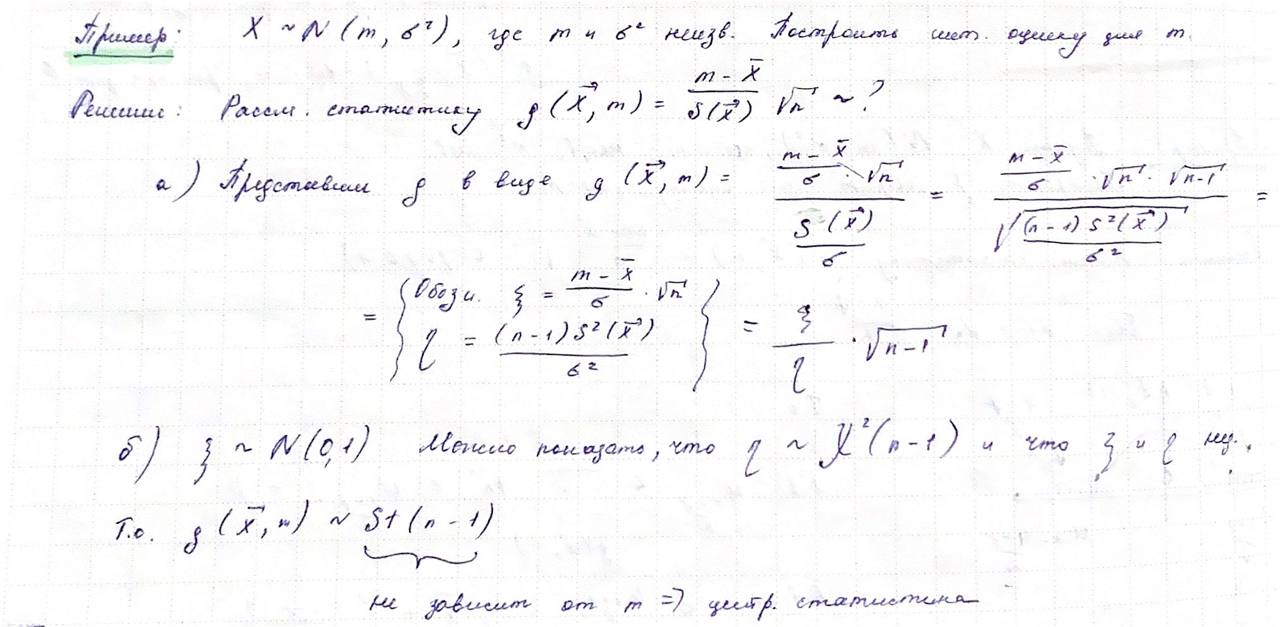 Пример: X ~ N(m, σ²), где m и σ² неизв. Построить инт. оценку для m.
Решение: Рассм. статистику g(X⃗, m) = (m − X̄)/S(X⃗) √n ~ ?
а) Представим g в виде g(X⃗, m) = ((m − X̄)/σ · √n)/(S(X⃗)/σ) = ((m − X̄)/σ · √n · √(n−1))/√((n−1)S²(X⃗)/σ²) =
= { Обозн. ξ = (m − X̄)/σ · √n
η = (n−1)S²(X⃗)/σ² } = ξ/η · √(n−1)
б) ξ ~ N(0,1) Можно показать, что η ~ χ²(n−1) и что ξ и η нез.
Т.о. g(X⃗, m) ~ St(n−1)
не зависит от m => центр. статистика